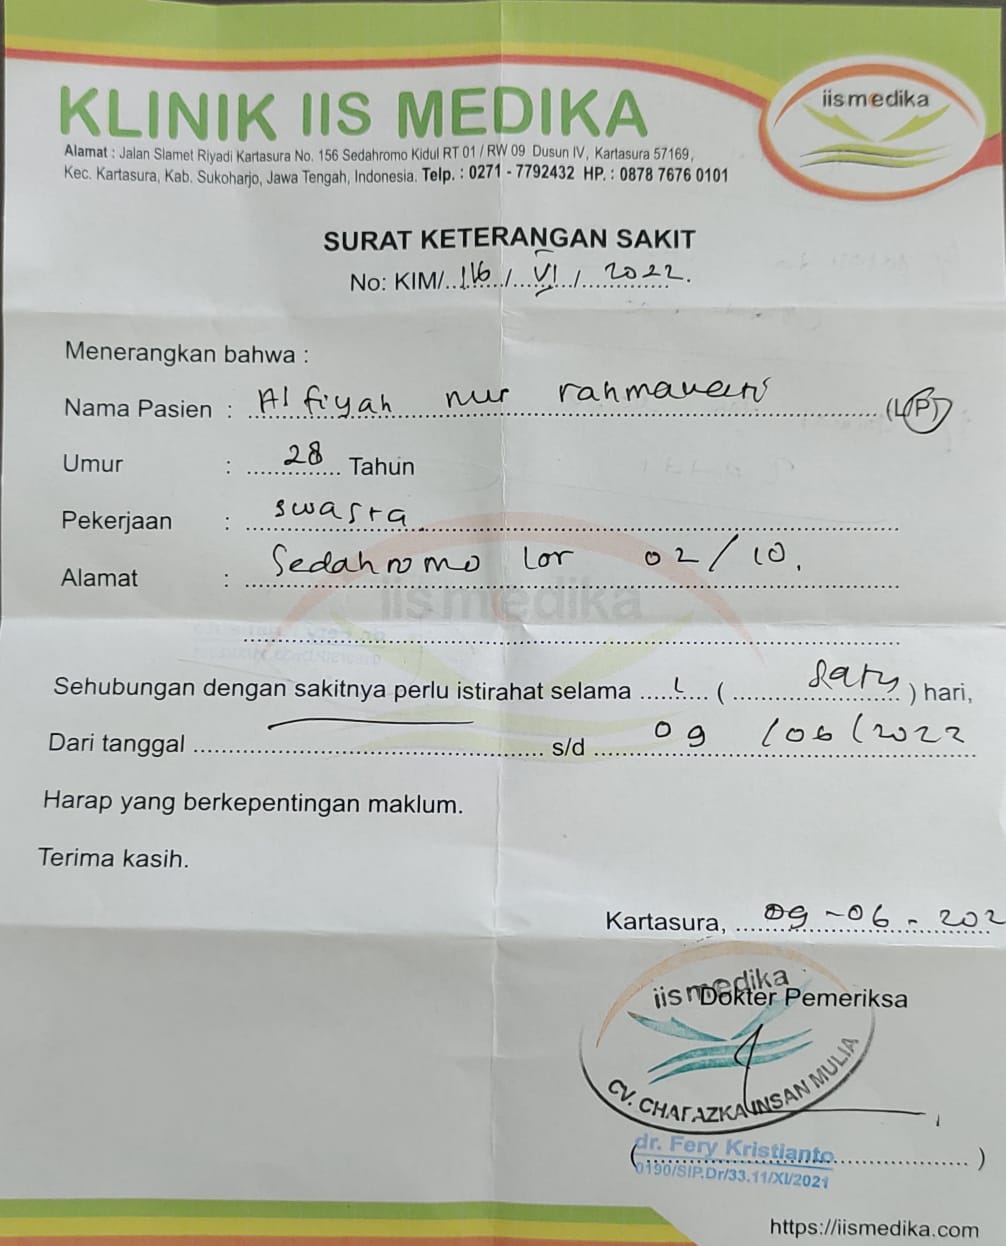 KLINIK IIS MEDIKA
iismedika
Alamat : Jalan Slamet Riyadi Kartasura No. 156 Sedahromo Kidul RT 01 / RW 09 Dusun IV, Kartasura 57169,
Kec. Kartasura, Kab. Sukoharjo, Jawa Tengah, Indonesia. Telp. : 0271 - 7792432 HP. : 0878 7676 0101
SURAT KETERANGAN SAKIT
No: KIM/ 116 / VI / 2022.
Menerangkan bahwa :
Nama Pasien : Alfiyah nur rahmawati (L/P)
Umur : 28 Tahun
Pekerjaan : swasta
Alamat : Sedahromo Lor 02/10.
iismedika
Sehubungan dengan sakitnya perlu istirahat selama 1 ( satu ) hari,
Dari tanggal s/d 09 /06/2022
Harap yang berkepentingan maklum.
Terima kasih.
Kartasura, 09-06-202
iismedika
Dokter Pemeriksa
CV. CHAFAZKA INSAN MULIA
(dr. Fery Kristianto )
0190/SIP.Dr/33.11/XI/2021
https://iismedika.com